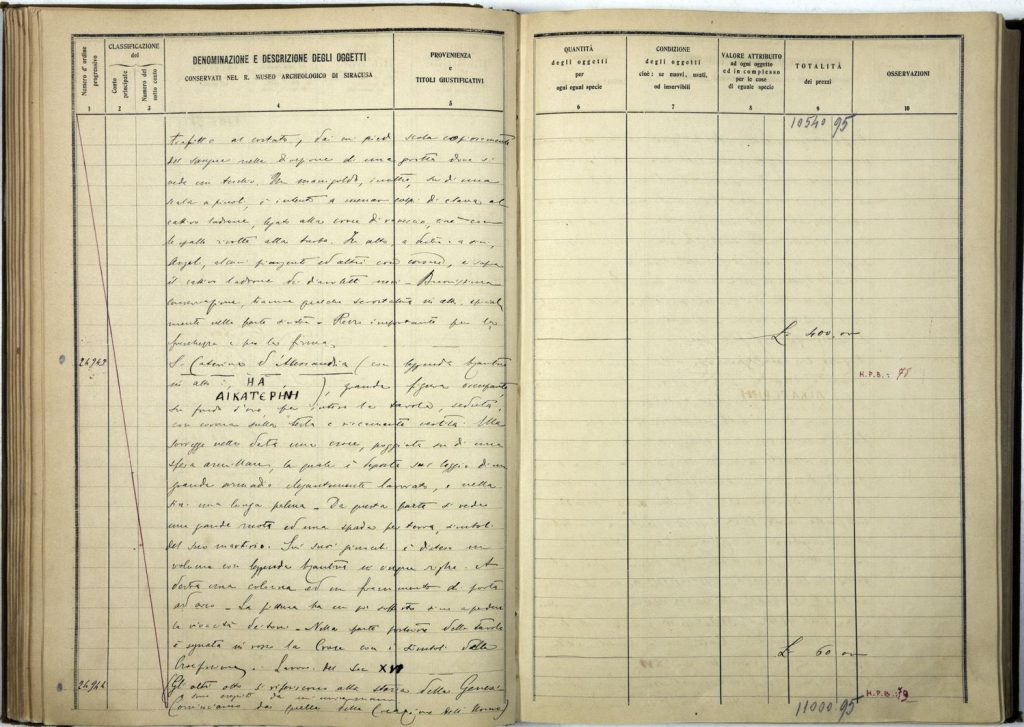 Numero d'ordine progressivo
CLASSIFICAZIONE del
Conto principale
Numero del sotto conto
DENOMINAZIONE E DESCRIZIONE DEGLI OGGETTI
CONSERVATI NEL R. MUSEO ARCHEOLOGICO DI SIRACUSA
PROVENIENZA
e
TITOLI GIUSTIFICATIVI
1 2 3 4 5
trafitto al costato, dai cui piedi scola copiosamente
del sangue nella direzione di una grotta dove si
vede un teschio. Un manigoldo, inoltre, su di una
scala a pioli, è intento a menar colpi di clava al
cattivo ladrone, legato alla croce di
le spalle rivolte alla turba. In alto, a destra e a sin.
Angeli, alcuni piangenti ed altri con corone, e sopra
il cattivo ladrone dei diavoletti neri - Buonissima
conservazione, tranne qualche scrostatura in alto, special
mente nella parte sinistra - Pezzo importante per la
freschezza e per la firma.
24943
S. Caterina d'Alessandria (con leggenda bizantina
in alto: HA
AIKATEPINI), grande figura occupante,
su fondo d'oro, per intero la tavola, seduta,
con corona sulla testa e riccamente vestita. Ella
sorregge nella destra una croce, poggiata su di una
sfera armillare, la quale è deposta sul leggio di un
grande armadio elegantemente lavorato, e nella
sin. una lunga palma - Da questa parte si vedono
una grande ruota ed una spada per terra, simboli
del suo martirio. Sui suoi ginocchi è disteso un
volume con leggenda bizantina in cinque righe. A
destra una colonna ed un frammento di porta
ad arco - La pittura ha un po' sofferto sino a perdere
la vivacità dei toni - Nella parte posteriore della tavola
è segnata in rosso la Croce con i simboli della
Crocifissione. Lavoro del sec XVI
24944
(Gli altri otto si riferiscono alla storia della Genesi
e sono eseguiti da
Cominciamo da quella della Creazione dell'Uomo)
QUANTITÀ
degli oggetti
per
ogni egual specie
CONDIZIONE
degli oggetti
cioè: se nuovi, usati,
od inservibili
VALORE ATTRIBUITO
ad ogni oggetto
ed in complesso
per le cose
di eguale specie
TOTALITÀ
dei prezzi
OSSERVAZIONI
6 7 8 9 10
10540 95
L. 400,00
H.P.B.: 78
L. 60,00
H.P.B.: 79
11000 95